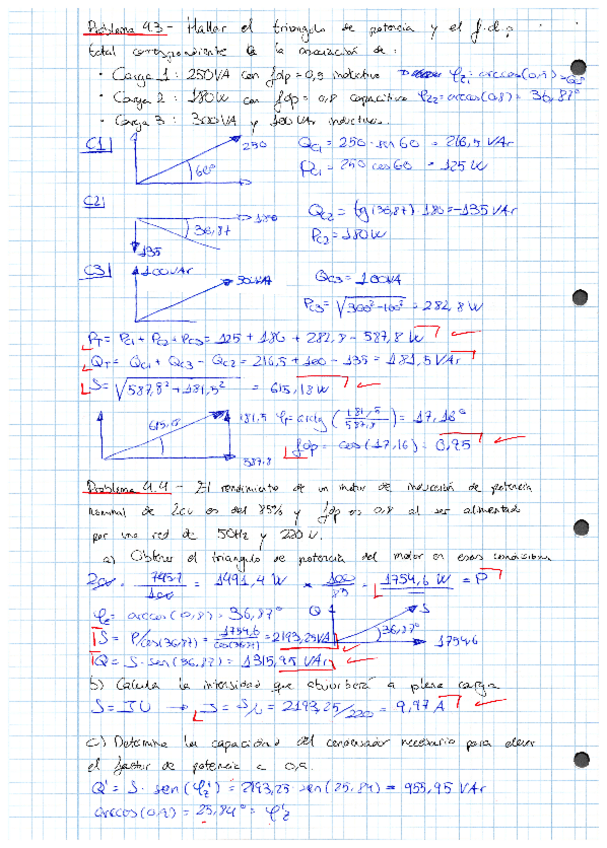 Problema 4.3 - Hallar el triangulo de potencia y el f.d.p
total correspondiente a la asociación de:
• Carga 1: 250VA con fdp = 0,5 inductivo φ: arccos(0,5) = 60°
• Carga 2: 180W con fdp = 0,8 capacitivo φ = arccos(0,8) = 36,87°
• Carga 3: 300VA y 100VAr inductivo.
C1 250 60° Qc1 = 250 · sen 60 = 216,5 VAr
Pc1 = 250 cos 60 = 125 W
C2 180 36,87 135 Qc2 = (tg(36,87) 180 = -135 VAr
Pc2 = 180W
C3 100VAr 300VA Qc3 = 100VA
Pc3 = √300²-100² = 282,8 W
PT = Pc1 + Pc2 + Pc3 = 125 + 180 + 282,8 = 587,8 W
QT = Qc1 + Qc3 - Qc2 = 216,5 + 100 - 135 = 181,5 VAr
S = √587,8² + 181,5² = 615,18 W
181,5 587,8 φ = arctg (181,5/587,8) = 17,16°
fdp = cos(17,16) = 0,95
Problema 4.4 - El rendimiento de un motor de inducción de potencia
nominal de 2cv es del 85% y fdp es 0,8 al ser alimentado
por una red de 50Hz y 220 V.
a) Obtener el triangulo de potencia del motor en esas condiciones
= 1491,4 W × 100/85 = 1754,6 W = P
φ = arccos(0,8) = 36,87° Q S 36,87° 1754,6
S = P/cos(36,87) = 1754,6/cos(36,87) = 2193,25VA
Q = S · sen(36,87) = 1315,95 VAr
b) Calcula la intensidad que absorberá a plena carga
S = I U → I = S/U = 2193,25/220 = 9,97 A
c) Determina la capacidad del condensador necesario para elevar
el factor de potencia a 0,9.
Q' = S · sen(φ') = 2193,25 · sen(25,84) = 955,95 VAr
arccos(0,9) = 25,84° = φ'